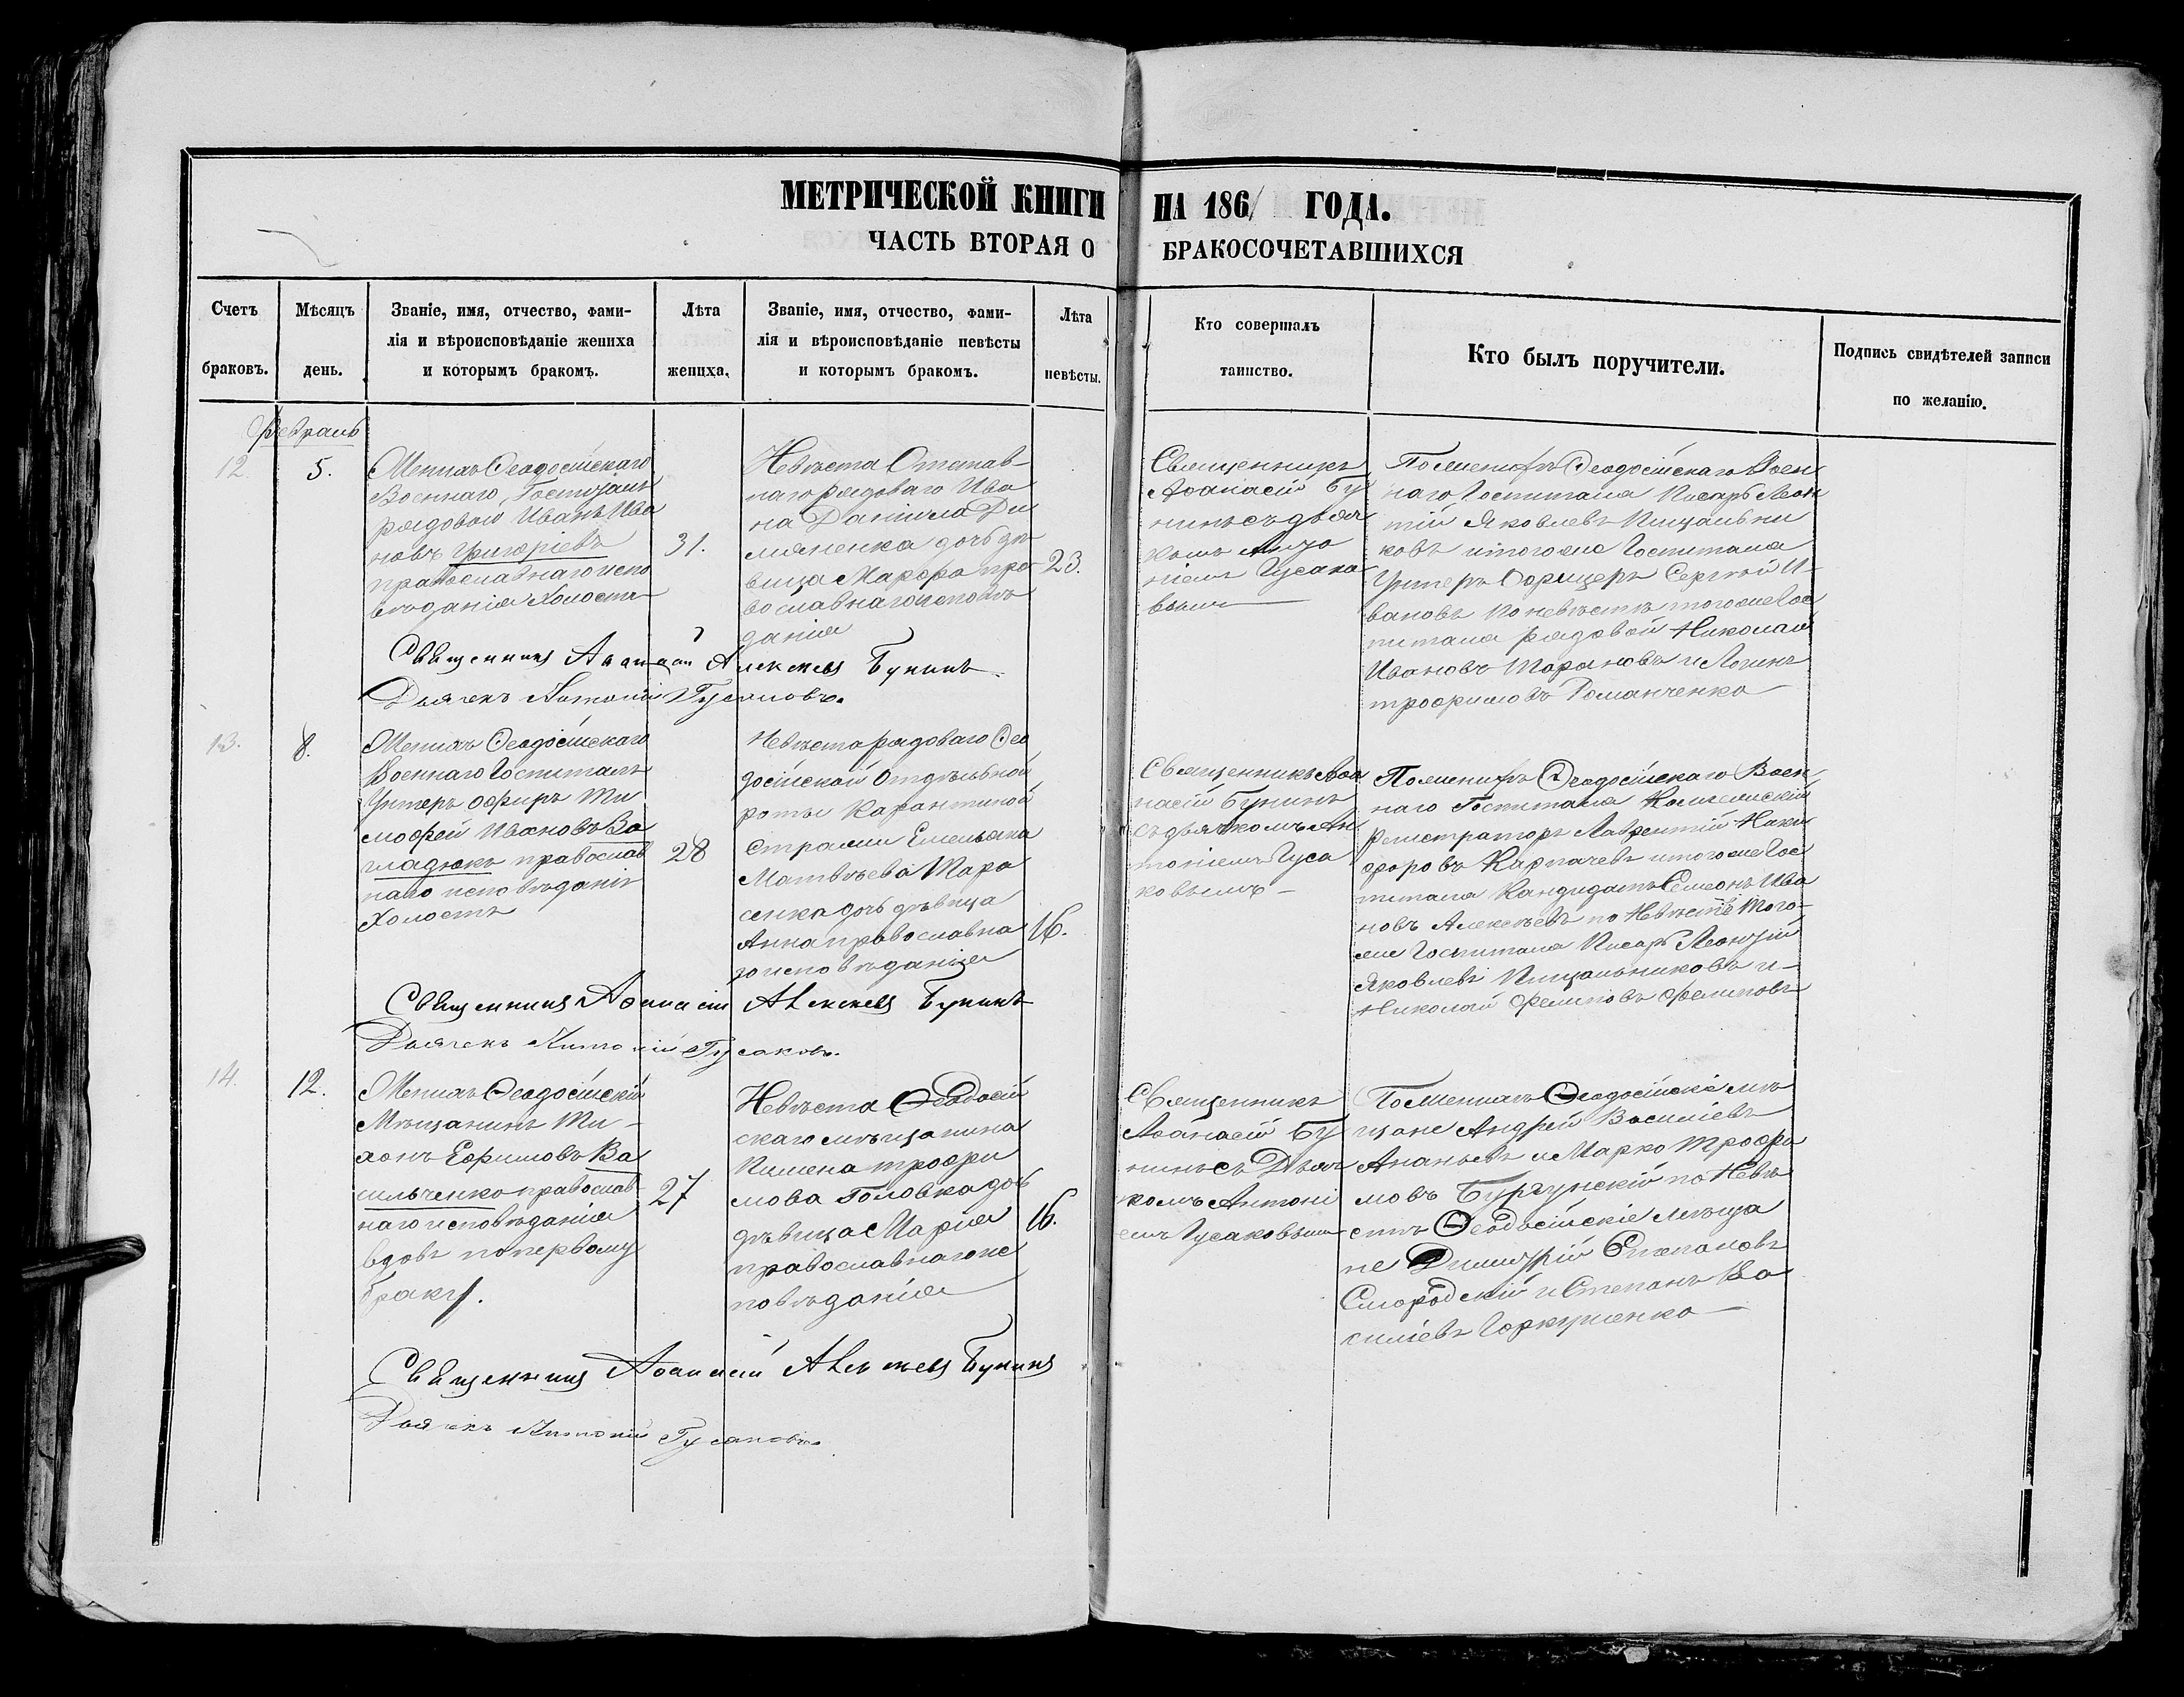 МЕТРИЧЕСКОЙ КНИГИ НА 1861 ГОДА.
ЧАСТЬ ВТОРАЯ О БРАКОСОЧЕТАВШИХСЯ
Счетъ браковъ.
Мѣсяцъ день.
Званіе, имя, отчество, фами-
лія и вѣроисповѣданіе жениха
и которымъ бракомъ.
Лѣта жениха.
Званіе, имя, отчество, фами-
лія и вѣроисповѣданіе невѣсты
и которымъ бракомъ.
Лѣта невѣсты.
Кто совершалъ
таинство.
Кто былъ поручители.
Подпись свидѣтелей записи
по желанію.
Февраль
12
5.
Женихъ Ѳеодосійскаго
Военнаго Госпиталя
рядовой Иванъ Ива
новъ Григоріевъ
православнаго испо
вѣданія Холостъ
31.
Невѣста Отстав-
наго рядоваго Ива
на Даніила Ди
мяненка дочь дѣ-
вица Марфа пра-
вославнаго исповѣ
данія
23.
Священникъ
Аѳанасій Бу
нинъ съ дьяч
комъ Анто
ніемъ Гусако
вымъ
По женихѣ Ѳеодосійскаго Воен
наго Госпиталя Писарь Леон
тій Яковлевъ Пищальни
ковъ и того же Госпиталя
Унтеръ Офицеръ Сергѣй И-
вановъ по невѣстѣ того же Гос
питаля рядовой Николай
Ивановъ Тарановъ и Логинъ
трофимовъ Романченко
Священникъ Аѳанасій Алексѣевъ Бунинъ
Дьячекъ Антоній Гусаковъ.
13.
8.
Женихъ Ѳеодосійскаго
Военнаго Госпиталя
Унтеръ офиръ Ти
мофей Ивановъ Ва
гладюкъ православ
наго исповѣданія
Холостъ
28
Невѣста рядоваго Ѳео
досійской Отдѣльной
роты Карантиной
стражи Емельяна
Матвѣева Тара
сенка дочь дѣвица
Анна православна
го исповѣданія
16.
Священникъ Аѳа
насій Бунинъ
съ дьячкомъ Ан
тоніемъ Гуса
ковымъ
По женихѣ Ѳеодосійскаго Воен
наго Госпиталя Колежскій
Регистраторъ Лаврентій Ники
форовъ Карпачевъ и того же Гос
питаля Кандидатъ Семіонъ Ива
новъ Алексѣевъ по Невѣстѣ Того-
же Госпиталя Писарь Леонтій
Яковлевъ Пищальниковъ и-
Николай Филиповъ Филиповъ
Священникъ Аѳанасій Алексѣевъ Бунинъ
Дьячекъ Антоній Гусаковъ.
14.
12.
Женихъ Ѳеодосійскій
Мѣщанинъ Ти-
хонъ Ефимовъ Ва
сильченко православ-
наго исповѣданія
вдовъ по первому
браку.
27
Невѣста Ѳеодосій
скаго мѣщанина
Пимена трофи
мова Головка дочь
дѣвица Марія
православнаго ис
повѣданія
16.
Священникъ
Аѳанасій Бу
нинъ съ Дьяч
комъ Антоні
емъ Гусаковымъ
По Женихѣ Ѳеодосійскіе мѣ
щане Андрей Василіевъ
Ананьевъ и Марко Трофи
мовъ Бургунскій по Невѣ
стѣ Ѳеодосійскіе мѣща
не Димитрій Степановъ
Смородскій и Степанъ Ва
силіевъ Горкушенко
Священникъ Аѳанасій Алексѣевъ Бунинъ
Дьячекъ Антоній Гусаковъ.